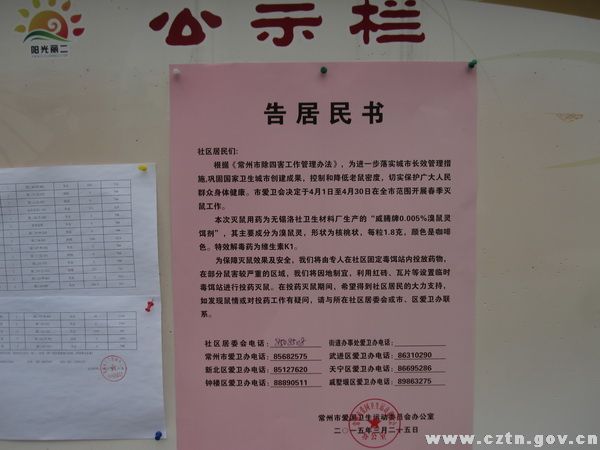 阳光丽二
公示栏
告居民书
社区居民们:
根据《常州市除四害工作管理办法》，为进一步落实城市长效管理措
施,巩固国家卫生城市创建成果，控制和降低老鼠密度，切实保护广大人民
群众身体健康。市爱卫会决定于4月1日至4月30日在全市范围开展春季灭
鼠工作。
本次灭鼠用药为无锡洛社卫生材料厂生产的“威腾牌0.005%溴鼠灵
饵剂”，其主要成分为溴鼠灵，形状为核桃状，每粒1.8克，颜色是咖啡
色。特效解毒药为维生素K1。
为保障灭鼠效果及安全，我们将由专人在社区固定毒饵站内投放药物，
在部分鼠害较严重的区域，我们将因地制宜，利用红砖、瓦片等设置临时
毒饵站进行投药灭鼠。在投药灭鼠期间，希望得到社区居民的大力支持，
如发现鼠情或对投药工作有疑问，请与所在社区居委会或市、区爱卫办联
系。
社区居委会电话: 街道办事处爱卫办电话:
常州市爱卫办电话: 85682575 武进区爱卫办电话: 86310290
新北区爱卫办电话: 85127620 天宁区爱卫办电话: 86695286
钟楼区爱卫办电话: 88890511 戚墅堰区爱卫办电话: 89863275
常州市爱国卫生运动委员会办公室
二〇一五年三月二十五日
www.cztn.gov.cn